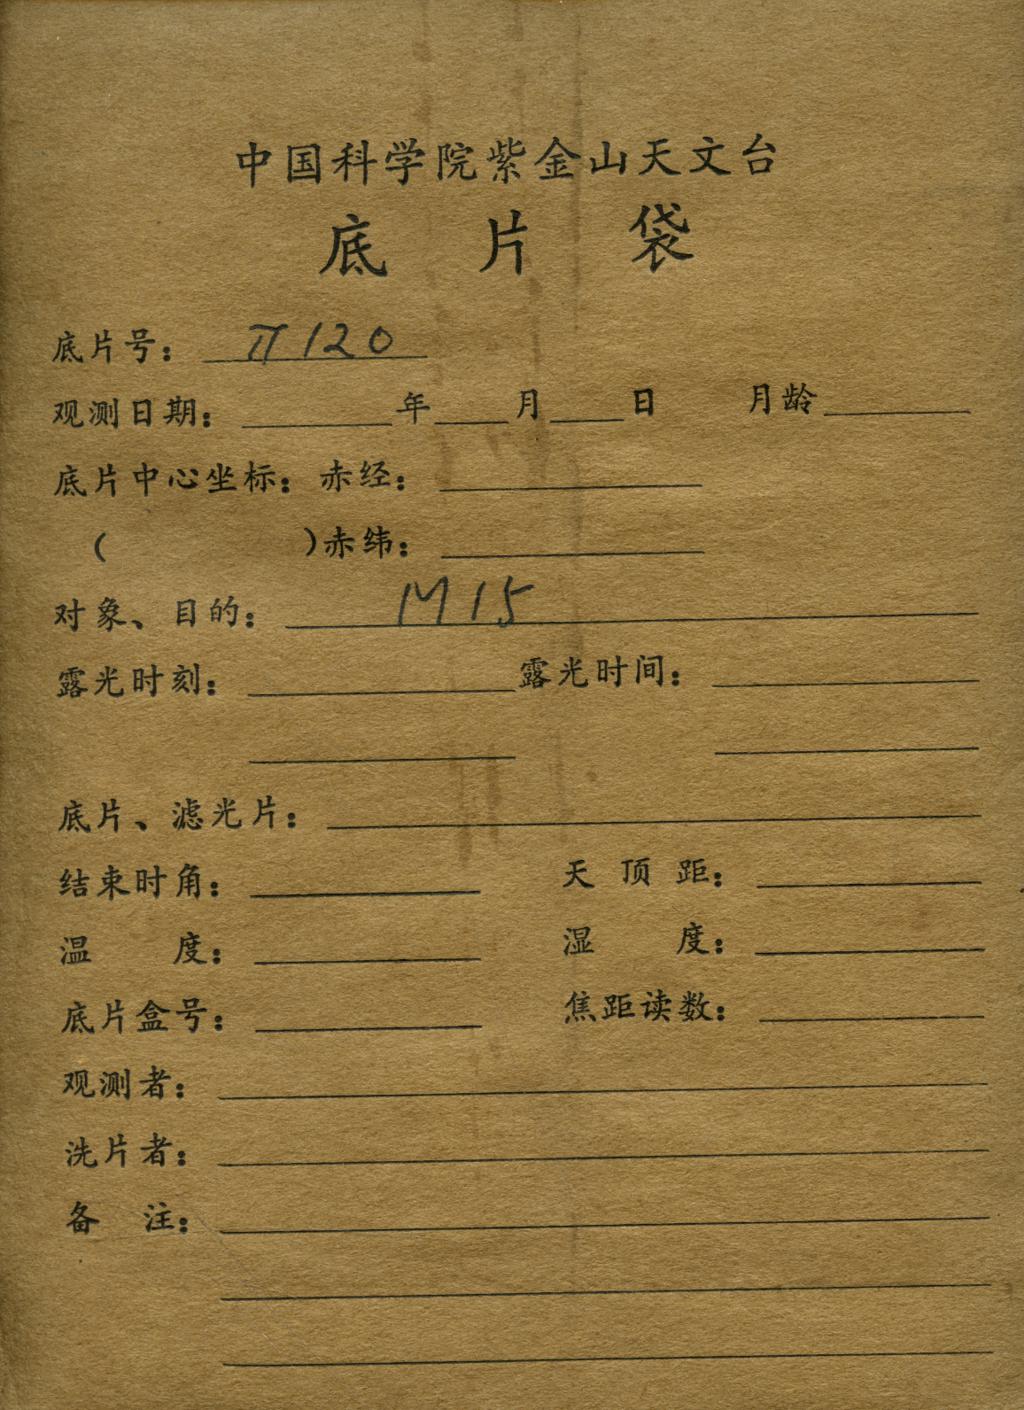 中国科学院紫金山天文台
底 片 袋
底片号： π120
观测日期： 年 月 日 月龄
底片中心坐标：赤经：
（ ）赤纬：
对象、目的： M15
露光时刻： 露光时间：
底片、滤光片：
结束时角： 天顶距：
温 度： 湿 度：
底片盒号： 焦距读数：
观测者：
洗片者：
备 注：